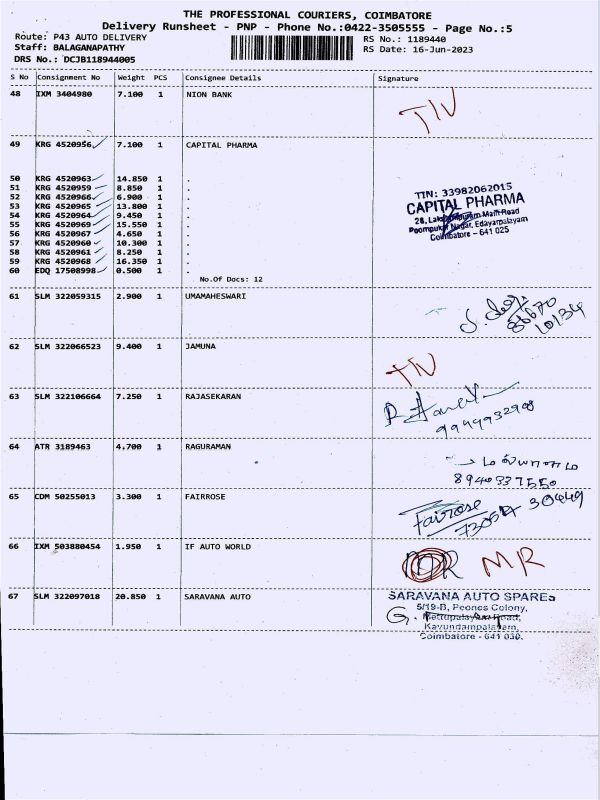 THE PROFESSIONAL COURIERS, COIMBATORE
Delivery Runsheet - PNP - Phone No.:0422-3505555 - Page No.:5
Route: P43 AUTO DELIVERY RS No.: 1189440
Staff: BALAGANAPATHY RS Date: 16-Jun-2023
DRS No.: DCJB118944005
S No Consignment No Weight PCS Consignee Details Signature
48 IXM 3404980 7.100 1 NION BANK
49 KRG 4520956 7.100 1 CAPITAL PHARMA
50 KRG 4520963 14.850 1 .
51 KRG 4520959 8.850 1 .
52 KRG 4520966 6.900 1 .
53 KRG 4520965 13.800 1 .
54 KRG 4520964 9.450 1 .
55 KRG 4520969 15.550 1 .
56 KRG 4520967 4.650 1 .
57 KRG 4520960 10.300 1 .
58 KRG 4520961 8.250 1 .
59 KRG 4520968 16.350 1 .
60 EDQ 17508998 0.500 1 .
No.Of Docs: 12
TIN: 33982062015
CAPITAL PHARMA
Main Road
Nagar, Edayarpalayam
Coimbatore - 641 025
61 SLM 322059315 2.900 1 UMAMAHESWARI
86670
10134
62 SLM 322066523 9.400 1 JAMUNA
63 SLM 322106664 7.250 1 RAJASEKARAN
9949932908
64 ATR 3189463 4.700 1 RAGURAMAN
8940337550
65 CDM 50255013 3.300 1 FAIRROSE
Fairrose
30449
66 IXM 503880454 1.950 1 IF AUTO WORLD MR
67 SLM 322097018 20.850 1 SARAVANA AUTO
SARAVANA AUTO SPARES
5/19-B, Peones Colony,
Mettupalayam Road,
Kavundampalayam,
Coimbatore - 641 030.